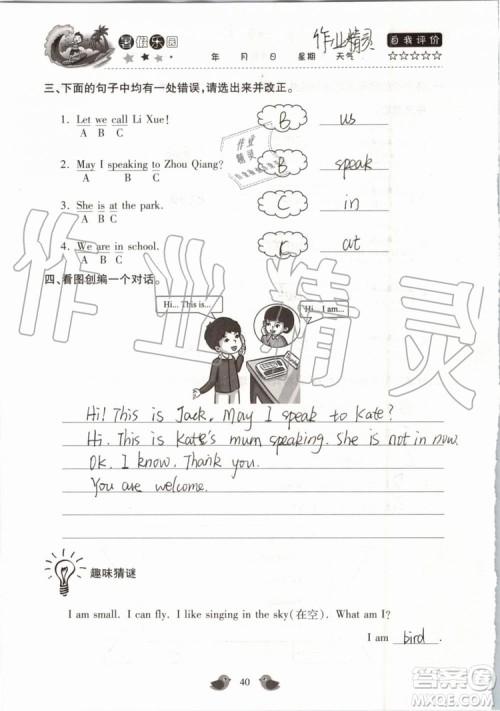 暑假乐园
年 月 日 星期 天气
作业精灵
自我评价
☆☆☆☆☆
三、下面的句子中均有一处错误,请选出来并改正。
1. Let we call Li Xue!
A B C
B us
2. May I speaking to Zhou Qiang?
A B C
B speak
3. She is at the park.
A B C
C in
4. We are in school.
A B C
C at
作业精灵
四、看图创编一个对话。
Hi... This is...
Hi... I am...
Hi! This is Jack. May I speak to Kate?
Hi. This is Kate's mum speaking. She is not in now.
OK. I know. Thank you.
You are welcome.
作业精灵
趣味猜谜
I am small. I can fly. I like singing in the sky(在空). What am I?
I am bird.
40
答案圈
MXQE.COM